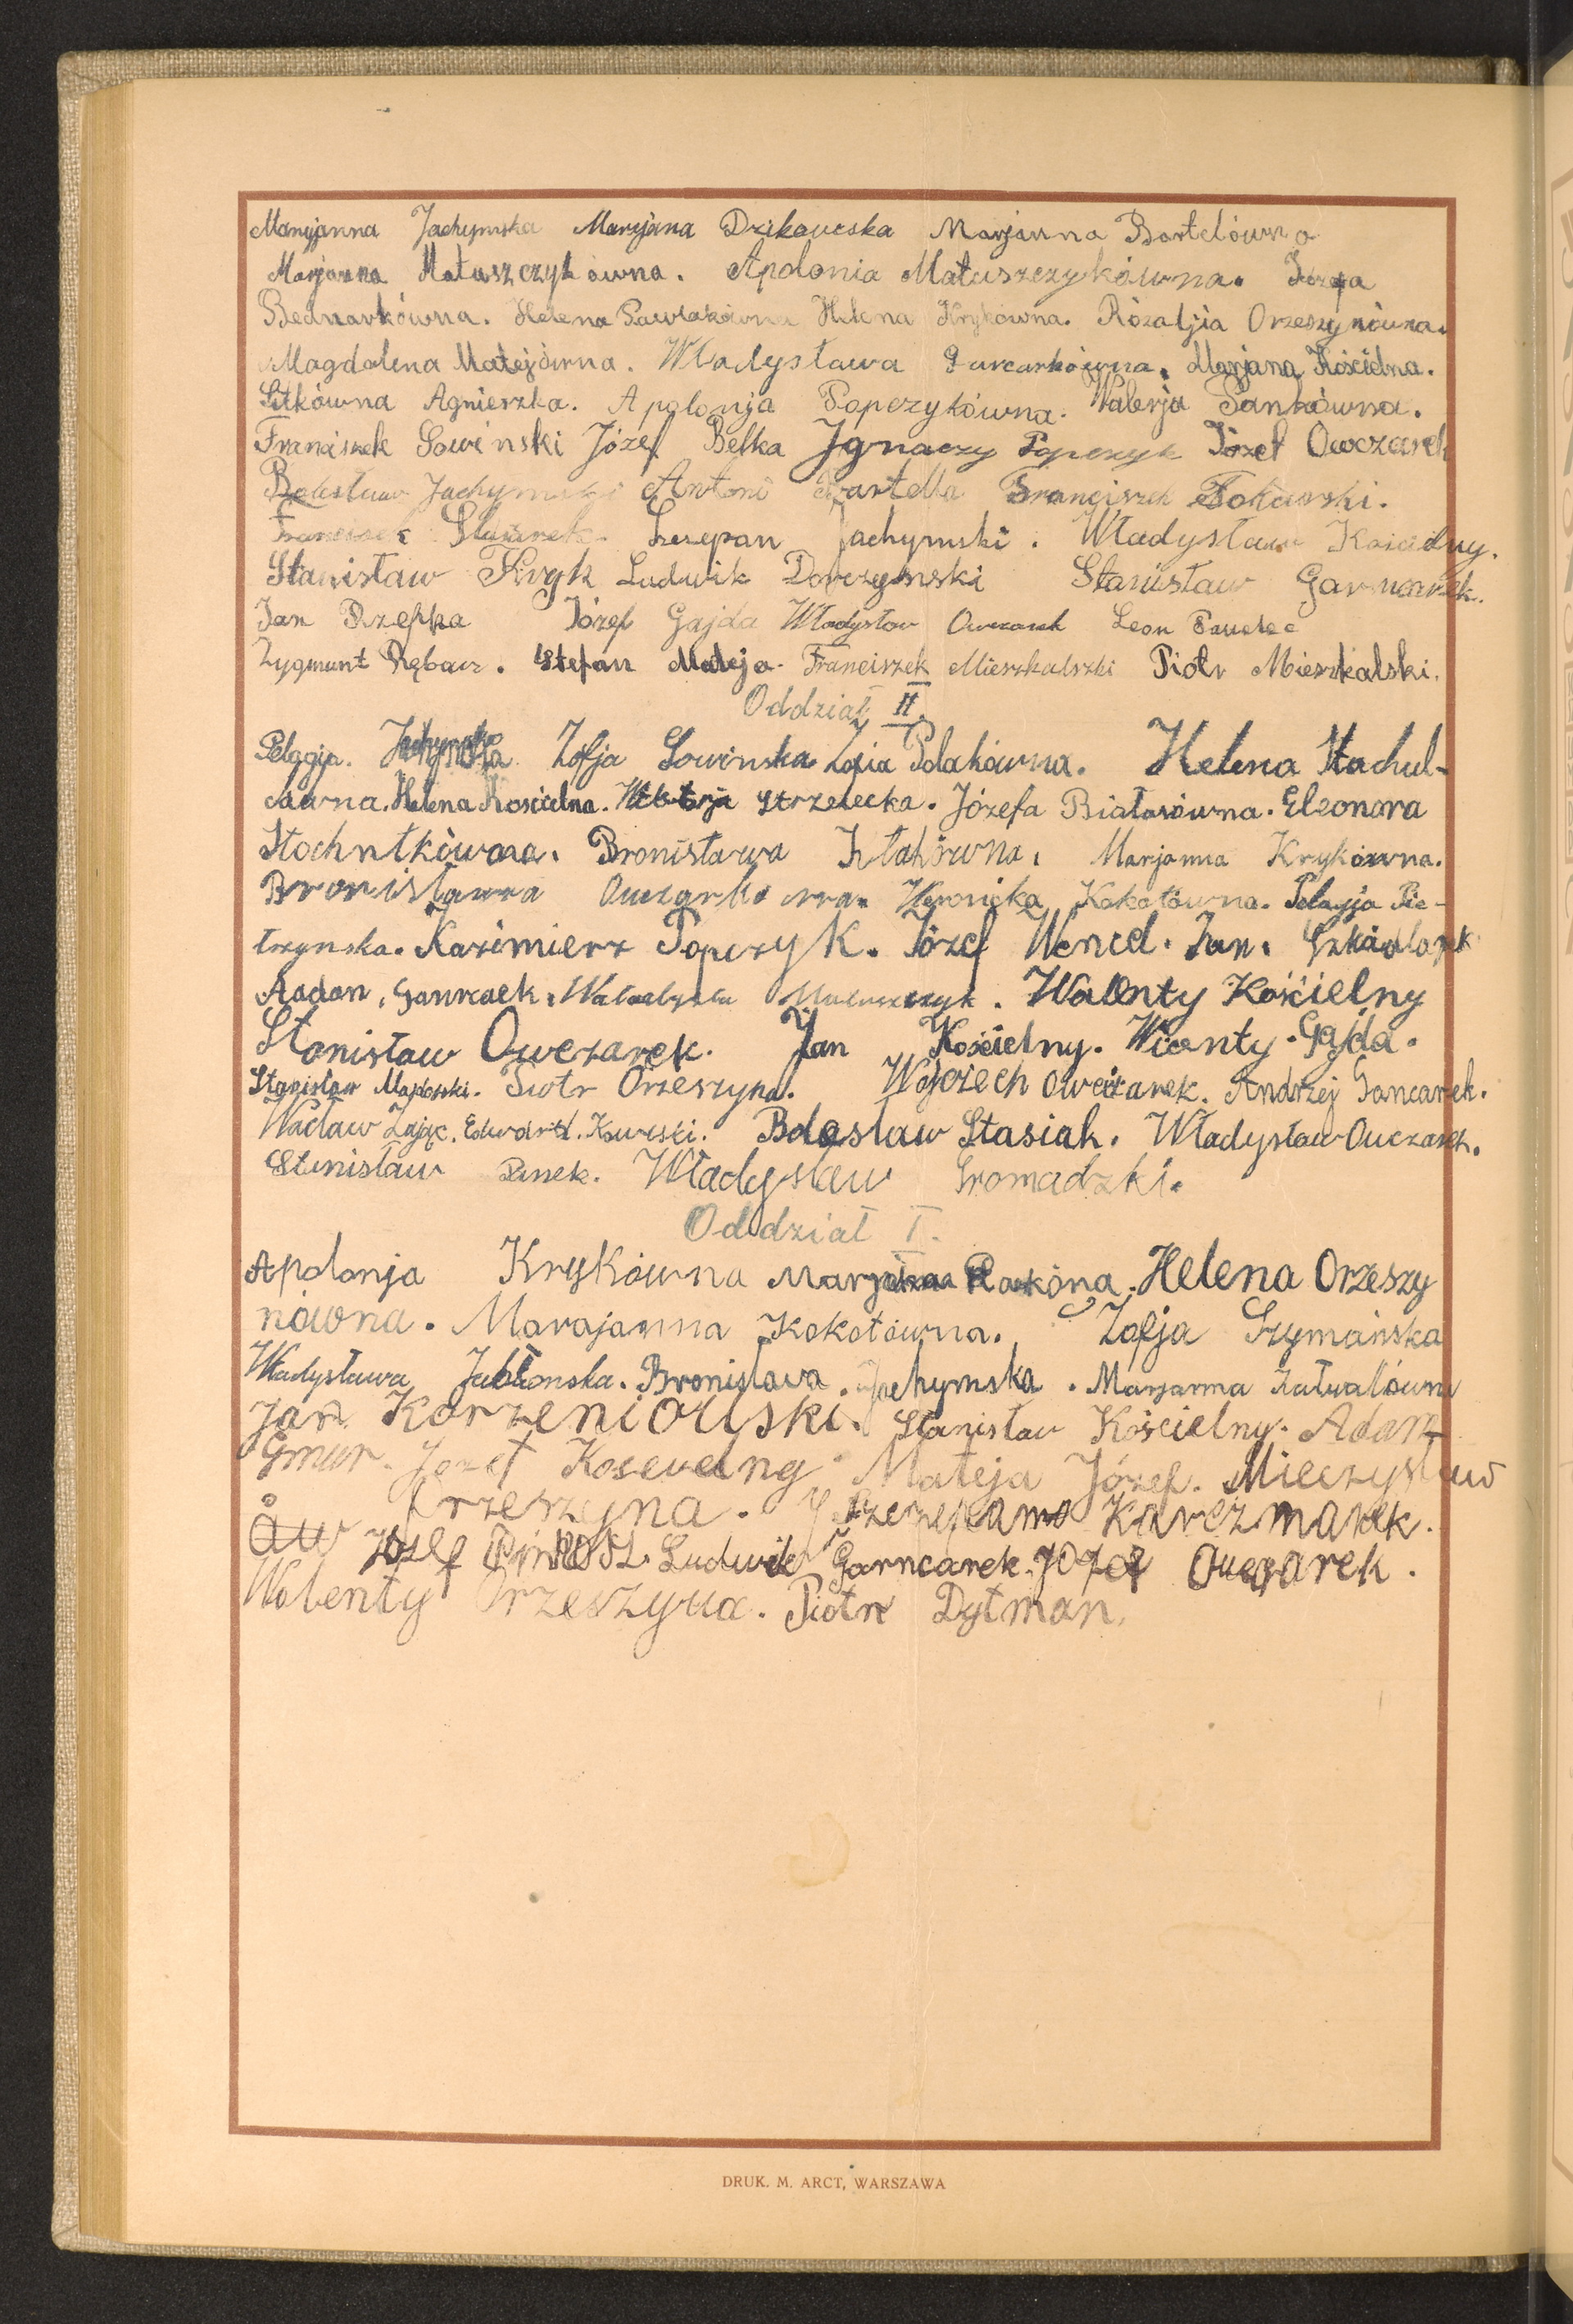 Maryjanna Jachymska Maryjana Dzikowska Marjanna Bartelówna
Marjanna Matuszczykówna. Apolonia Matuszczykówna. Józefa
Bednarkówna. Helena Pawlakówna Helena Krykówna. Rózaljia Orzeszynówna.
Magdalena Matejówna. Władysława Garcarkówna. Marjana Kościelna.
Sitkówna Agnieszka. Apolonja Popczykówna. Walerja Pankówna.
Franciszek Sowinski Józef Belka Jgnaczy Popczyk Józef Owczarek
Bolesław Jachymski Antoni Bartella Franciszek
Franciszek Szczepan Jachymski. Władysław Kościelny.
Stanisław Kryk Ludwik Stanisław Garncarek.
Jan Rzepka Józef Gajda Władysław Owczarek Leon Pawelec
Zygmunt Rębacz. Stefan Mateja. Franciszek Mieszkalszki Piotr Mieszkalski.
Oddział II.
Pelagja. Jachymska Zofja Sowinska Zofia Polakówna. Helena Stachul-
cówna. Helena Kościelna. Wiktorja Strzelecka. Józefa Białasówna. Eleonora
Stochnlkówna. Bronisława Marjanna Krykówna.
Bronisława Weronika Kokotówna. Pelagja Pie-
trzynska. Kazimierz Popczyk. Józef Wencel. Jan. Szkudlarek
Aadan, Ganrcaek. Matuszczyk. Walenty Kościelny
Stanisław Owczarek. Jan Kościelny. Wicenty. Gajda.
Stanisław Majewski. Piotr Orzeszyna. Wojciech Owczarek. Andrzej Gancarek.
Wacław Zając. Edward. Bolesław Stasiak. Władysław Owczarek.
Stanisław Panek. Władysław Gromadzki.
Oddział I.
Apolonja Krykówna Marjanna Helena Orzeszy
nówna. Marajanna Kokotówna. Zofja Szymańska
Władysława Jabłonska. Bronisława. Jachymska. Marjanna
Jan Korzeniowski. Stanisław Kościelny. Adam
Gmur. Jozef Mateja Józef. Mieczysław
Orzeszyna. Karczmarek.
aw Józef Ludwik Garncarek. Owczarek.
Walenty Orzeszyna. Piotr Dytman.
DRUK. M. ARCT, WARSZAWA